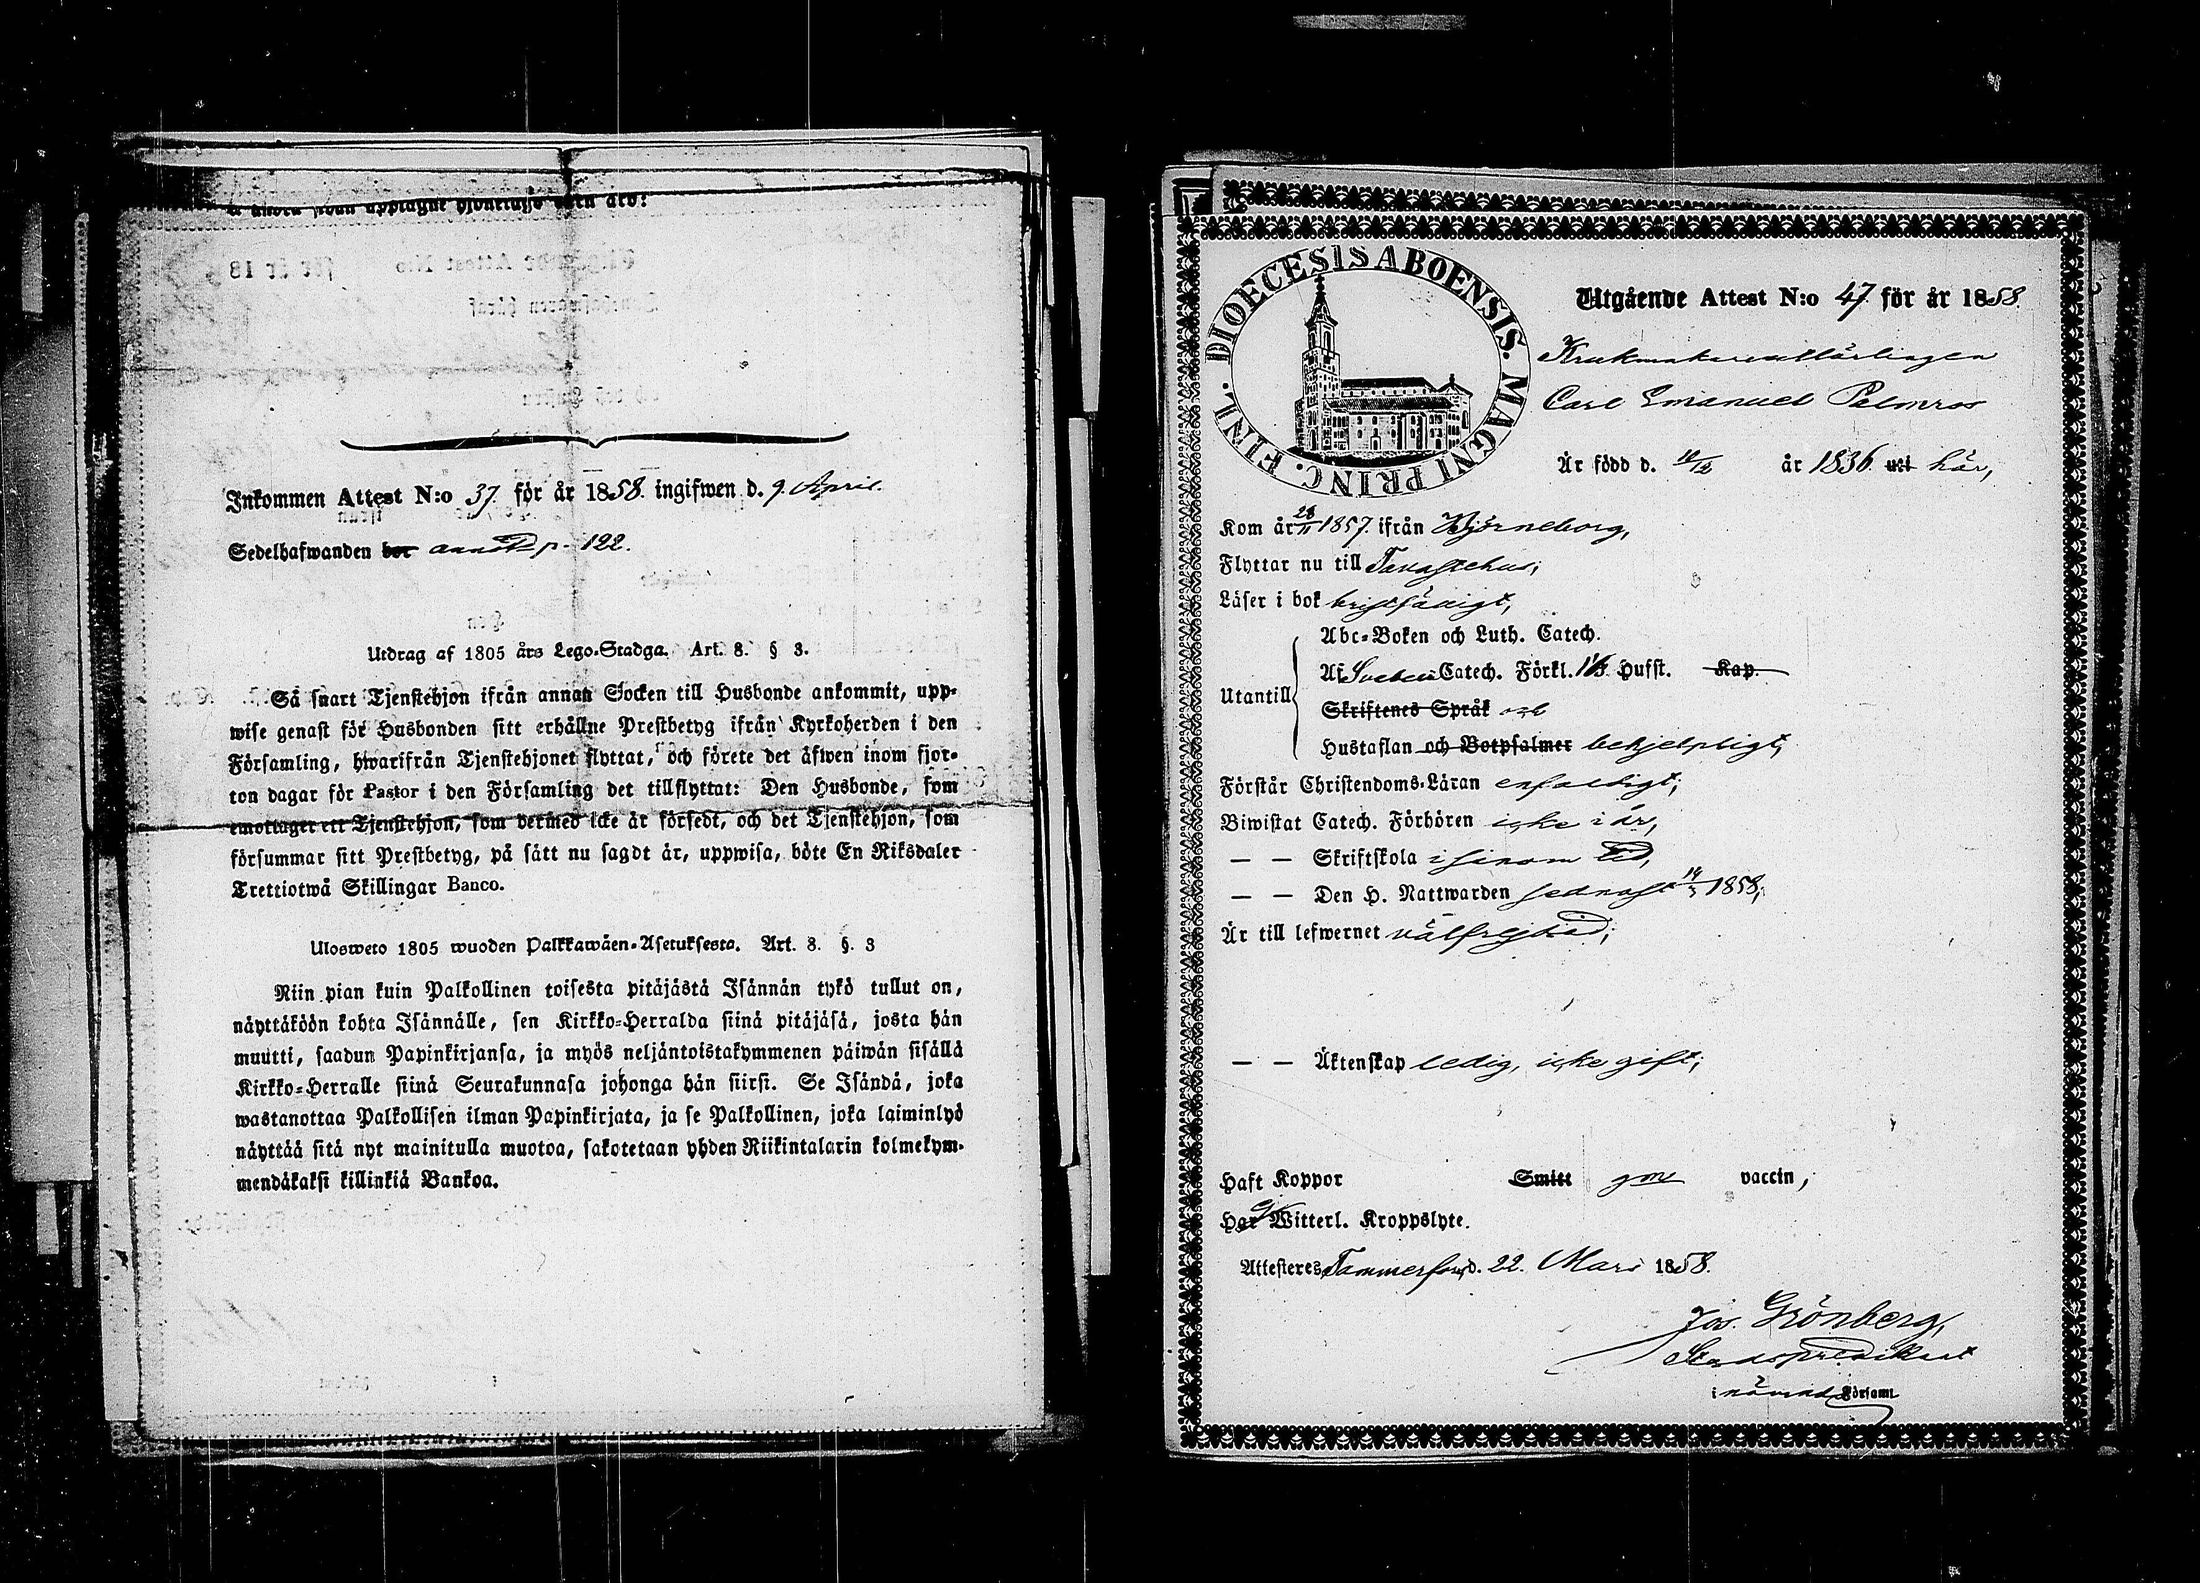 Inkommen Attest N:o 37. för år 1858. ingifwen d. 9. April.
Sedelhafwanden bor annot. p. 122.
Utdrag af 1805 års Lego-Stadga. Art. 8. § 3.
Så snart Tjenstehjon ifrån annan Socken till Husbonde ankommit, upp-
wise genast för Husbonden sitt erhållne Prestbetyg ifrån Kyrkoherden i den
Församling, hwarifrån Tjenstehjonet flyttat, och förete det äfwen inom fjor-
ton dagar för Pastor i den Församling det tillflyttat: Den Husbonde, som
emottager ett Tjenstehjon, som dermed icke är försedt, och det Tjenstehjon, som
försummar sitt Prestbetyg, på sätt nu sagdt är, uppwisa, böte En Riksdaler
Trettiotwå Skillingar Banco.
Ulosweto 1805 wuoden Palkkawäen-Asetuksesta. Art. 8. §. 3
Niin pian kuin Palkollinen toisesta pitäjästä Isännän tykö tullut on,
näyttäköön kohta Isännälle, sen Kirkko-Herralda siinä pitäjäsä, josta hän
muutti, saadun Papinkirjansa, ja myös neljäntoistakymmenen päiwän sisällä
Kirkko-Herralle siinä Seurakunnasa johonga hän siirsi. Se Isändä, joka
wastanottaa Palkollisen ilman Papinkirjata, ja se Palkollinen, joka laiminlyö
näyttää sitä nyt mainitulla muotoa, sakotetaan yhden Riikintalarin kolmekym-
mendäkaksi killinkiä Bankoa.
DIOECESIS ABOENSIS. MAGNI PRINC. FINL.
Utgående Attest N:o 47. för år 1858.
Krukmakareallärlingen
Carl Emanuel Palmros
Är född d. år 1836 uti här,
Kom år 28/11 1857. ifrån Björneborg,
Flyttar nu till Tavastehus;
Läser i bok bristfälligt,
Utantill
Abc-Boken och Luth. Catech.
Af Svebelii Catech. Förkl. 1 1/2 Hufst. Kap.
Skriftenes Språk och
Hustaflan och Botpsalmer behjelpligt,
Förstår Christendoms-Läran enfaldigt;
Biwistat Catech. Förhören icke i år,
— — Skriftskola i sinom tid,
— — Den H. Nattwarden sednast 14/3 1858,
Är till lefwernet välfrejdad;
— — Äktenskap ledig, icke gift;
Haft Koppor Smitt gm vaccin,
Har ej Witterl. Kroppslyte.
Attesteres Tammerfors d. 22. Mars 1858.
Jos. Grönberg,
Stadspredikant
i nämnde Församl